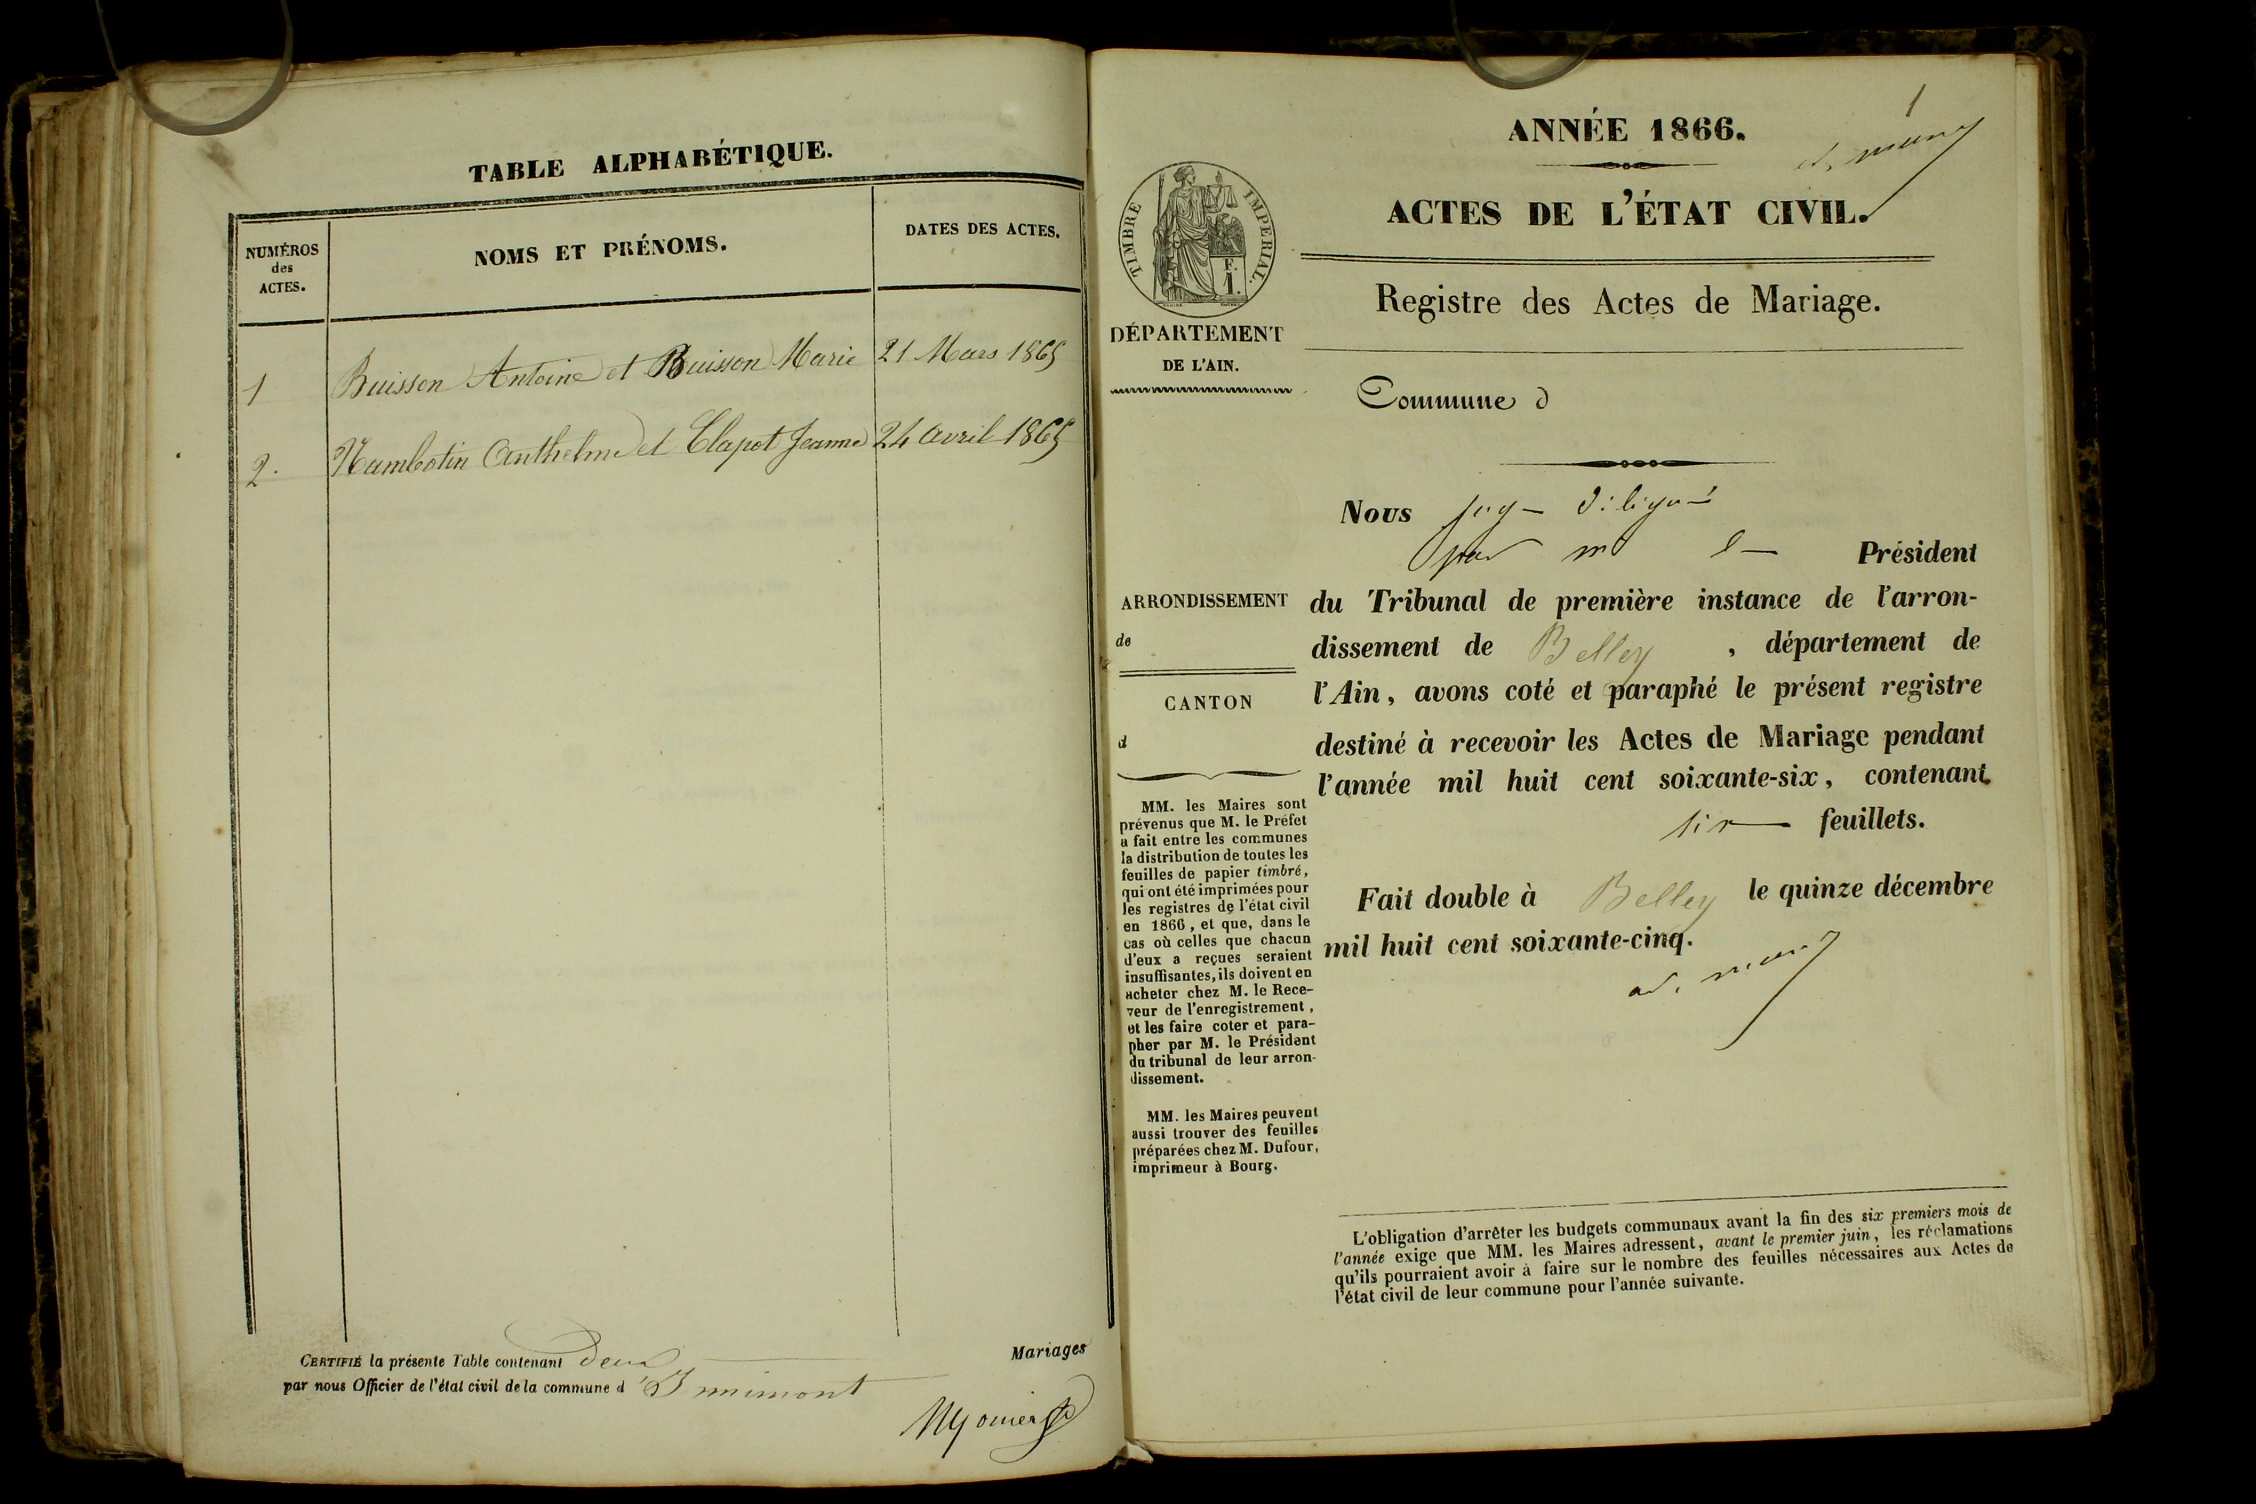 TABLE ALPHABÉTIQUE.
NUMÉROS
des
ACTES.
NOMS ET PRÉNOMS.
DATES DES ACTES.
1 Buisson Antoine et Buisson Marie 21 Mars 1865
2. Nambotin Anthelme et Clapot Jeanne 24 avril 1865
CERTIFIÉ la présente Table contenant deux Mariages
par nous Officier de l'état civil de la commune d'Innimont
1
ANNÉE 1866.
ACTES DE L'ÉTAT CIVIL.
TIMBRE IMPERIAL.
F.
1.
DÉPARTEMENT
DE L'AIN.
Registre des Actes de Mariage.
Commune d
Nous juge délégué
par m le Président
ARRONDISSEMENT
de
CANTON
d
du Tribunal de première instance de l'arron-
dissement de Belley, département de
l'Ain, avons coté et paraphé le présent registre
destiné à recevoir les Actes de Mariage pendant
l'année mil huit cent soixante-six, contenant
six feuillets.
Fait double à Belley le quinze décembre
mil huit cent soixante-cinq.
MM. les Maires sont
prévenus que M. le Préfet
a fait entre les communes
la distribution de toutes les
feuilles de papier timbré,
qui ont été imprimées pour
les registres de l'état civil
en 1866, et que, dans le
cas où celles que chacun
d'eux a reçues seraient
insuffisantes, ils doivent en
acheter chez M. le Rece-
veur de l'enregistrement,
et les faire coter et para-
pher par M. le Président
du tribunal de leur arron-
dissement.
MM. les Maires peuvent
aussi trouver des feuilles
préparées chez M. Dufour,
imprimeur à Bourg.
L'obligation d'arrêter les budgets communaux avant la fin des six premiers mois de
l'année exige que MM. les Maires adressent, avant le premier juin, les réclamations
qu'ils pourraient avoir à faire sur le nombre des feuilles nécessaires aux Actes de
l'état civil de leur commune pour l'année suivante.